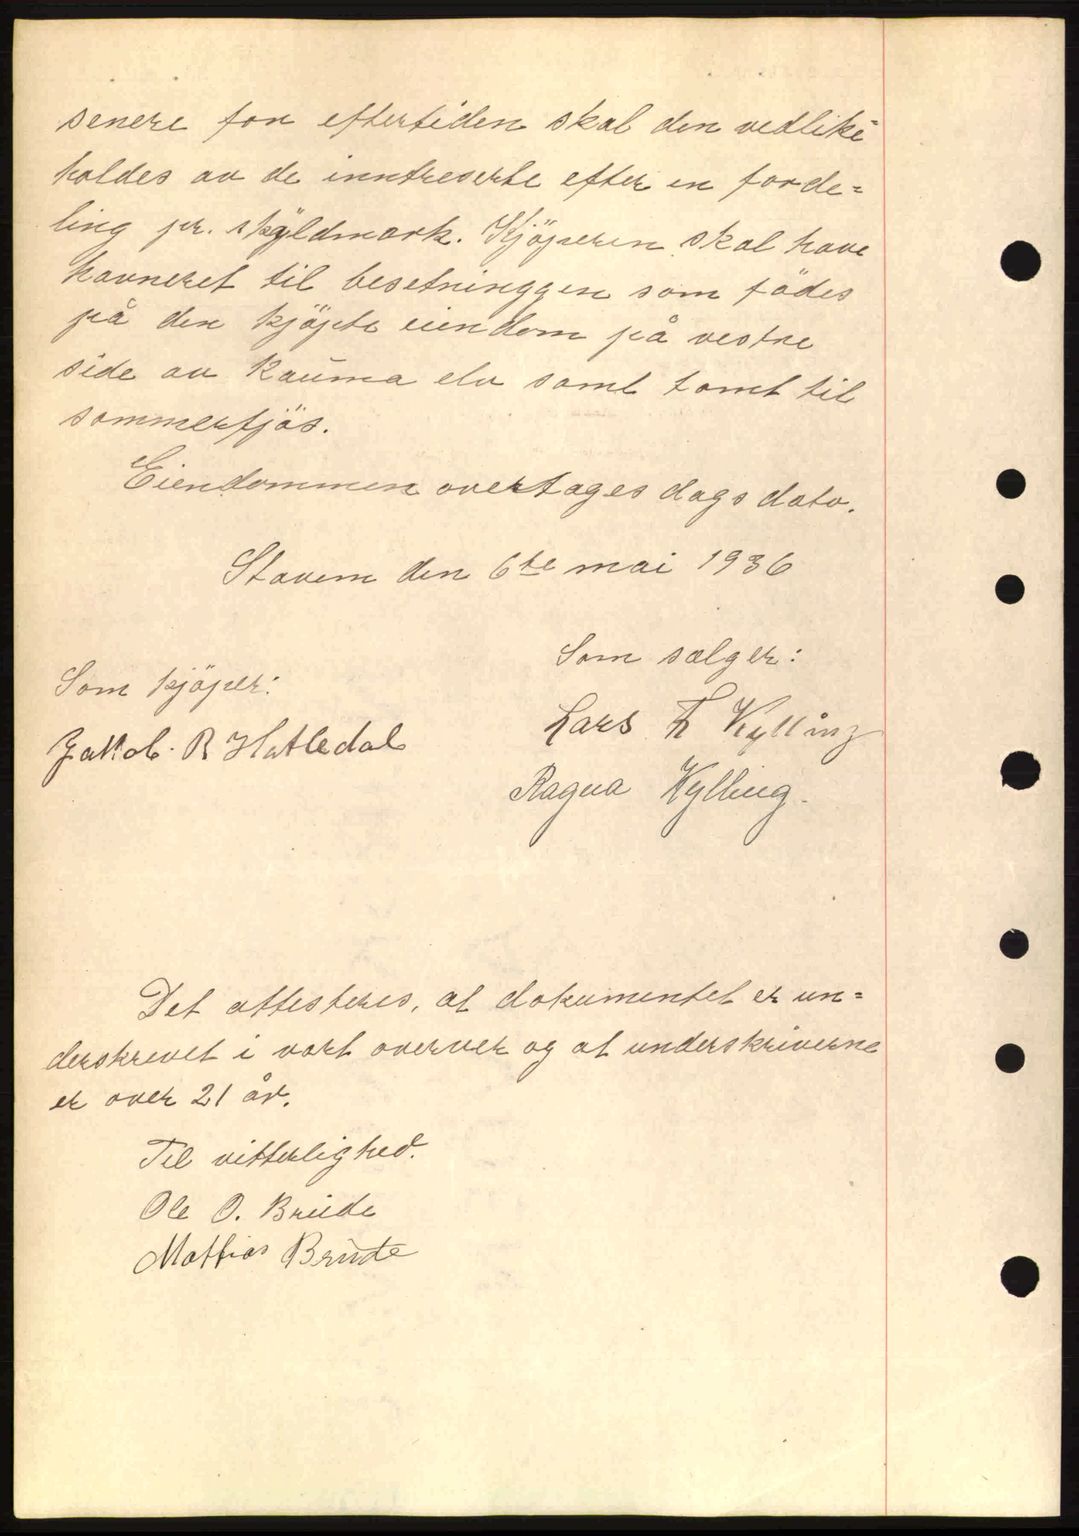 senere for eftertiden skal den vedlike
holdes av de inntreserte efter en forde=
ling pr. skyldmark. Kjöperen skal have
havneret til besetninggen som födes
på den kjöpte eiendom på vestre
side av Rauma elv samt tomt til
sommerfjös.
Eiendommen overtages dags dato.
Stavem den 6te mai 1936
Som sælger:
Som kjöper:
Lars Th Kylling
Jakob. R Hatledal
Ragna Kylling.
Det attesteres, at dokumentet er un=
derskrevet i vart overver og at underskriverne
er over 21 år.
Til vitterlighed.
Ole O. Brude
Mathias Brude